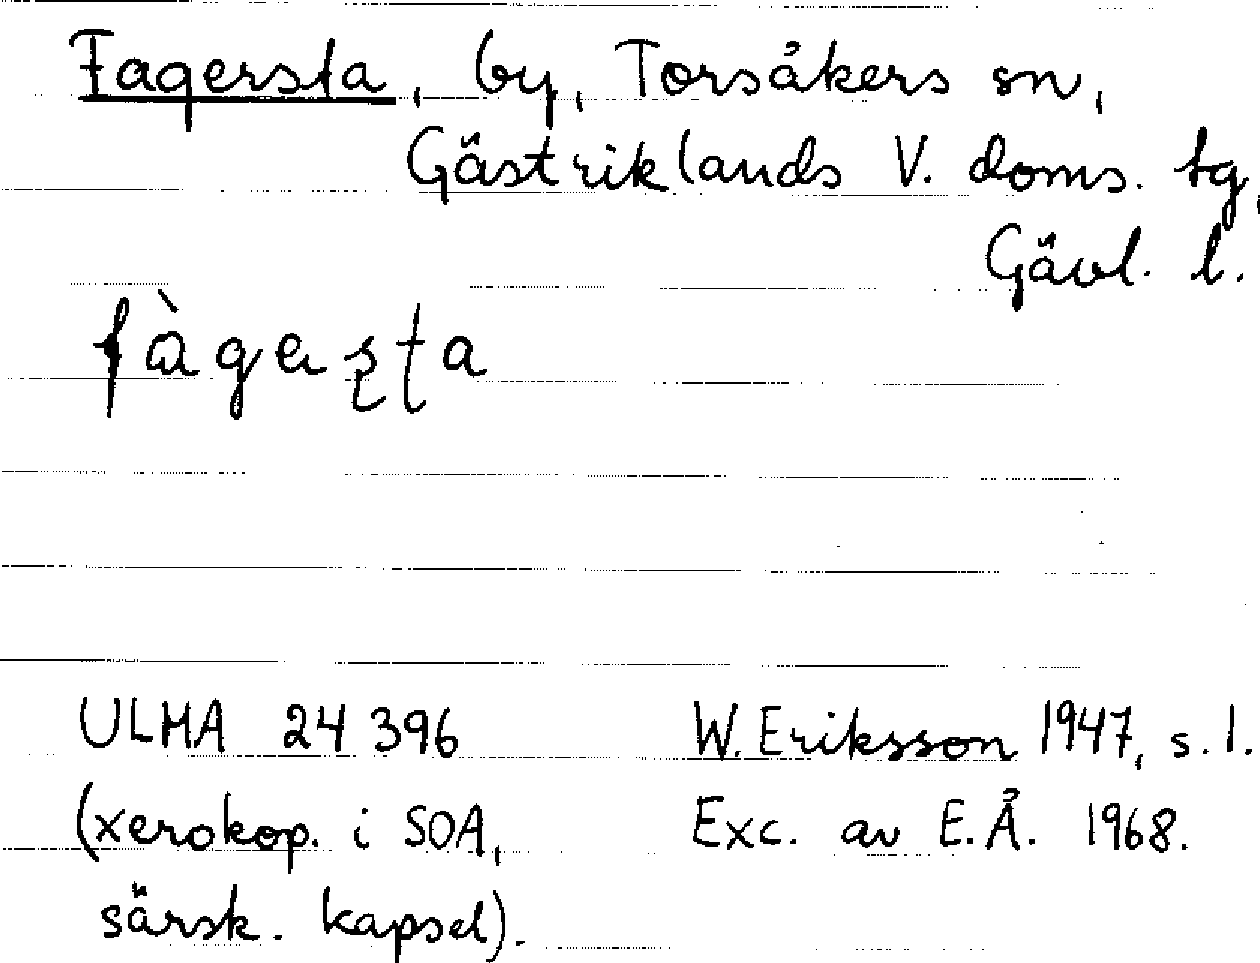 Fagersta, by, Torsåkers sn,
Gästriklands V. doms. tg,
Gävl. l.
fàgaʂʈa
ULMA 24 396
W. Eriksson 1947, s. 1.
(xerokop. i SOA,
Exc. av E.Å. 1968.
särsk. kapsel).